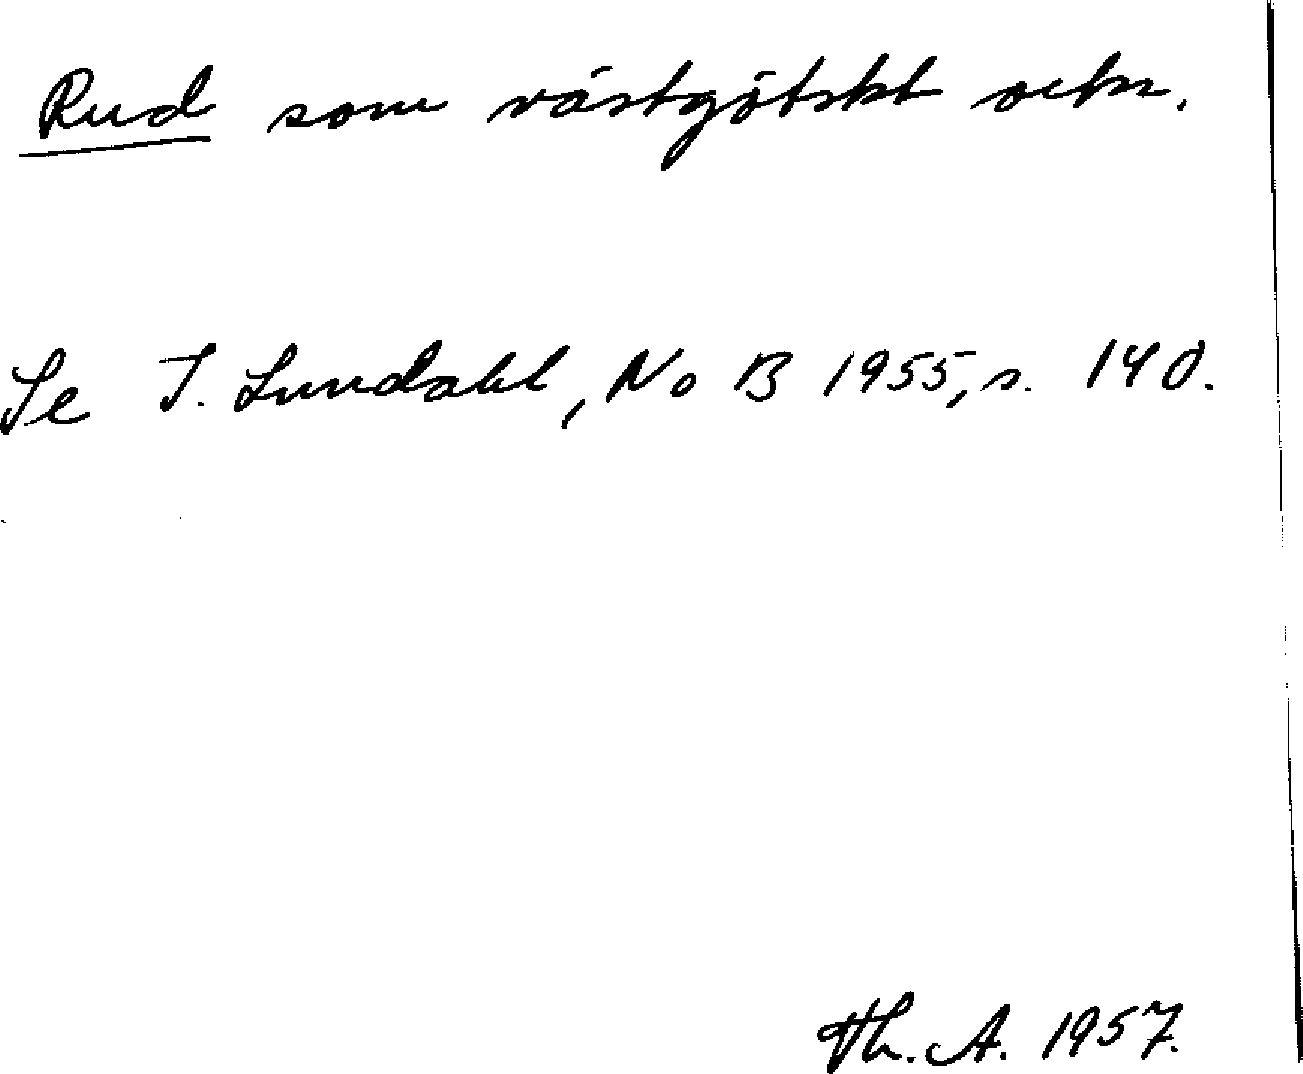 Rud som västgötskt ortn.
Se I. Lundahl, No B 1955, s. 140.
Th. A. 1957.